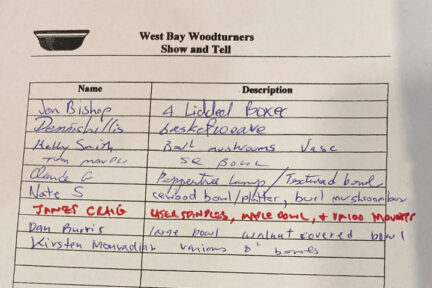 West Bay Woodturners
Show and Tell
Name Description
Jon Bishop 4 Lidded Boxes
Dennis Lillis basketweave
Kelly Smith Bowl mushrooms Vase
Tom bowl
Claude G Peppertree Lamp / Textured bowl
Nate S bowl/platter, burl mushroom box
JAMES CRAIG MAPLE BOWL, +
Dan Burris large bowl walnut covered bowl
Kirsten various 8" bowls